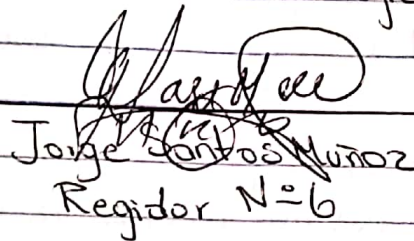 Jorge Santos Muñoz
Regidor Nº6